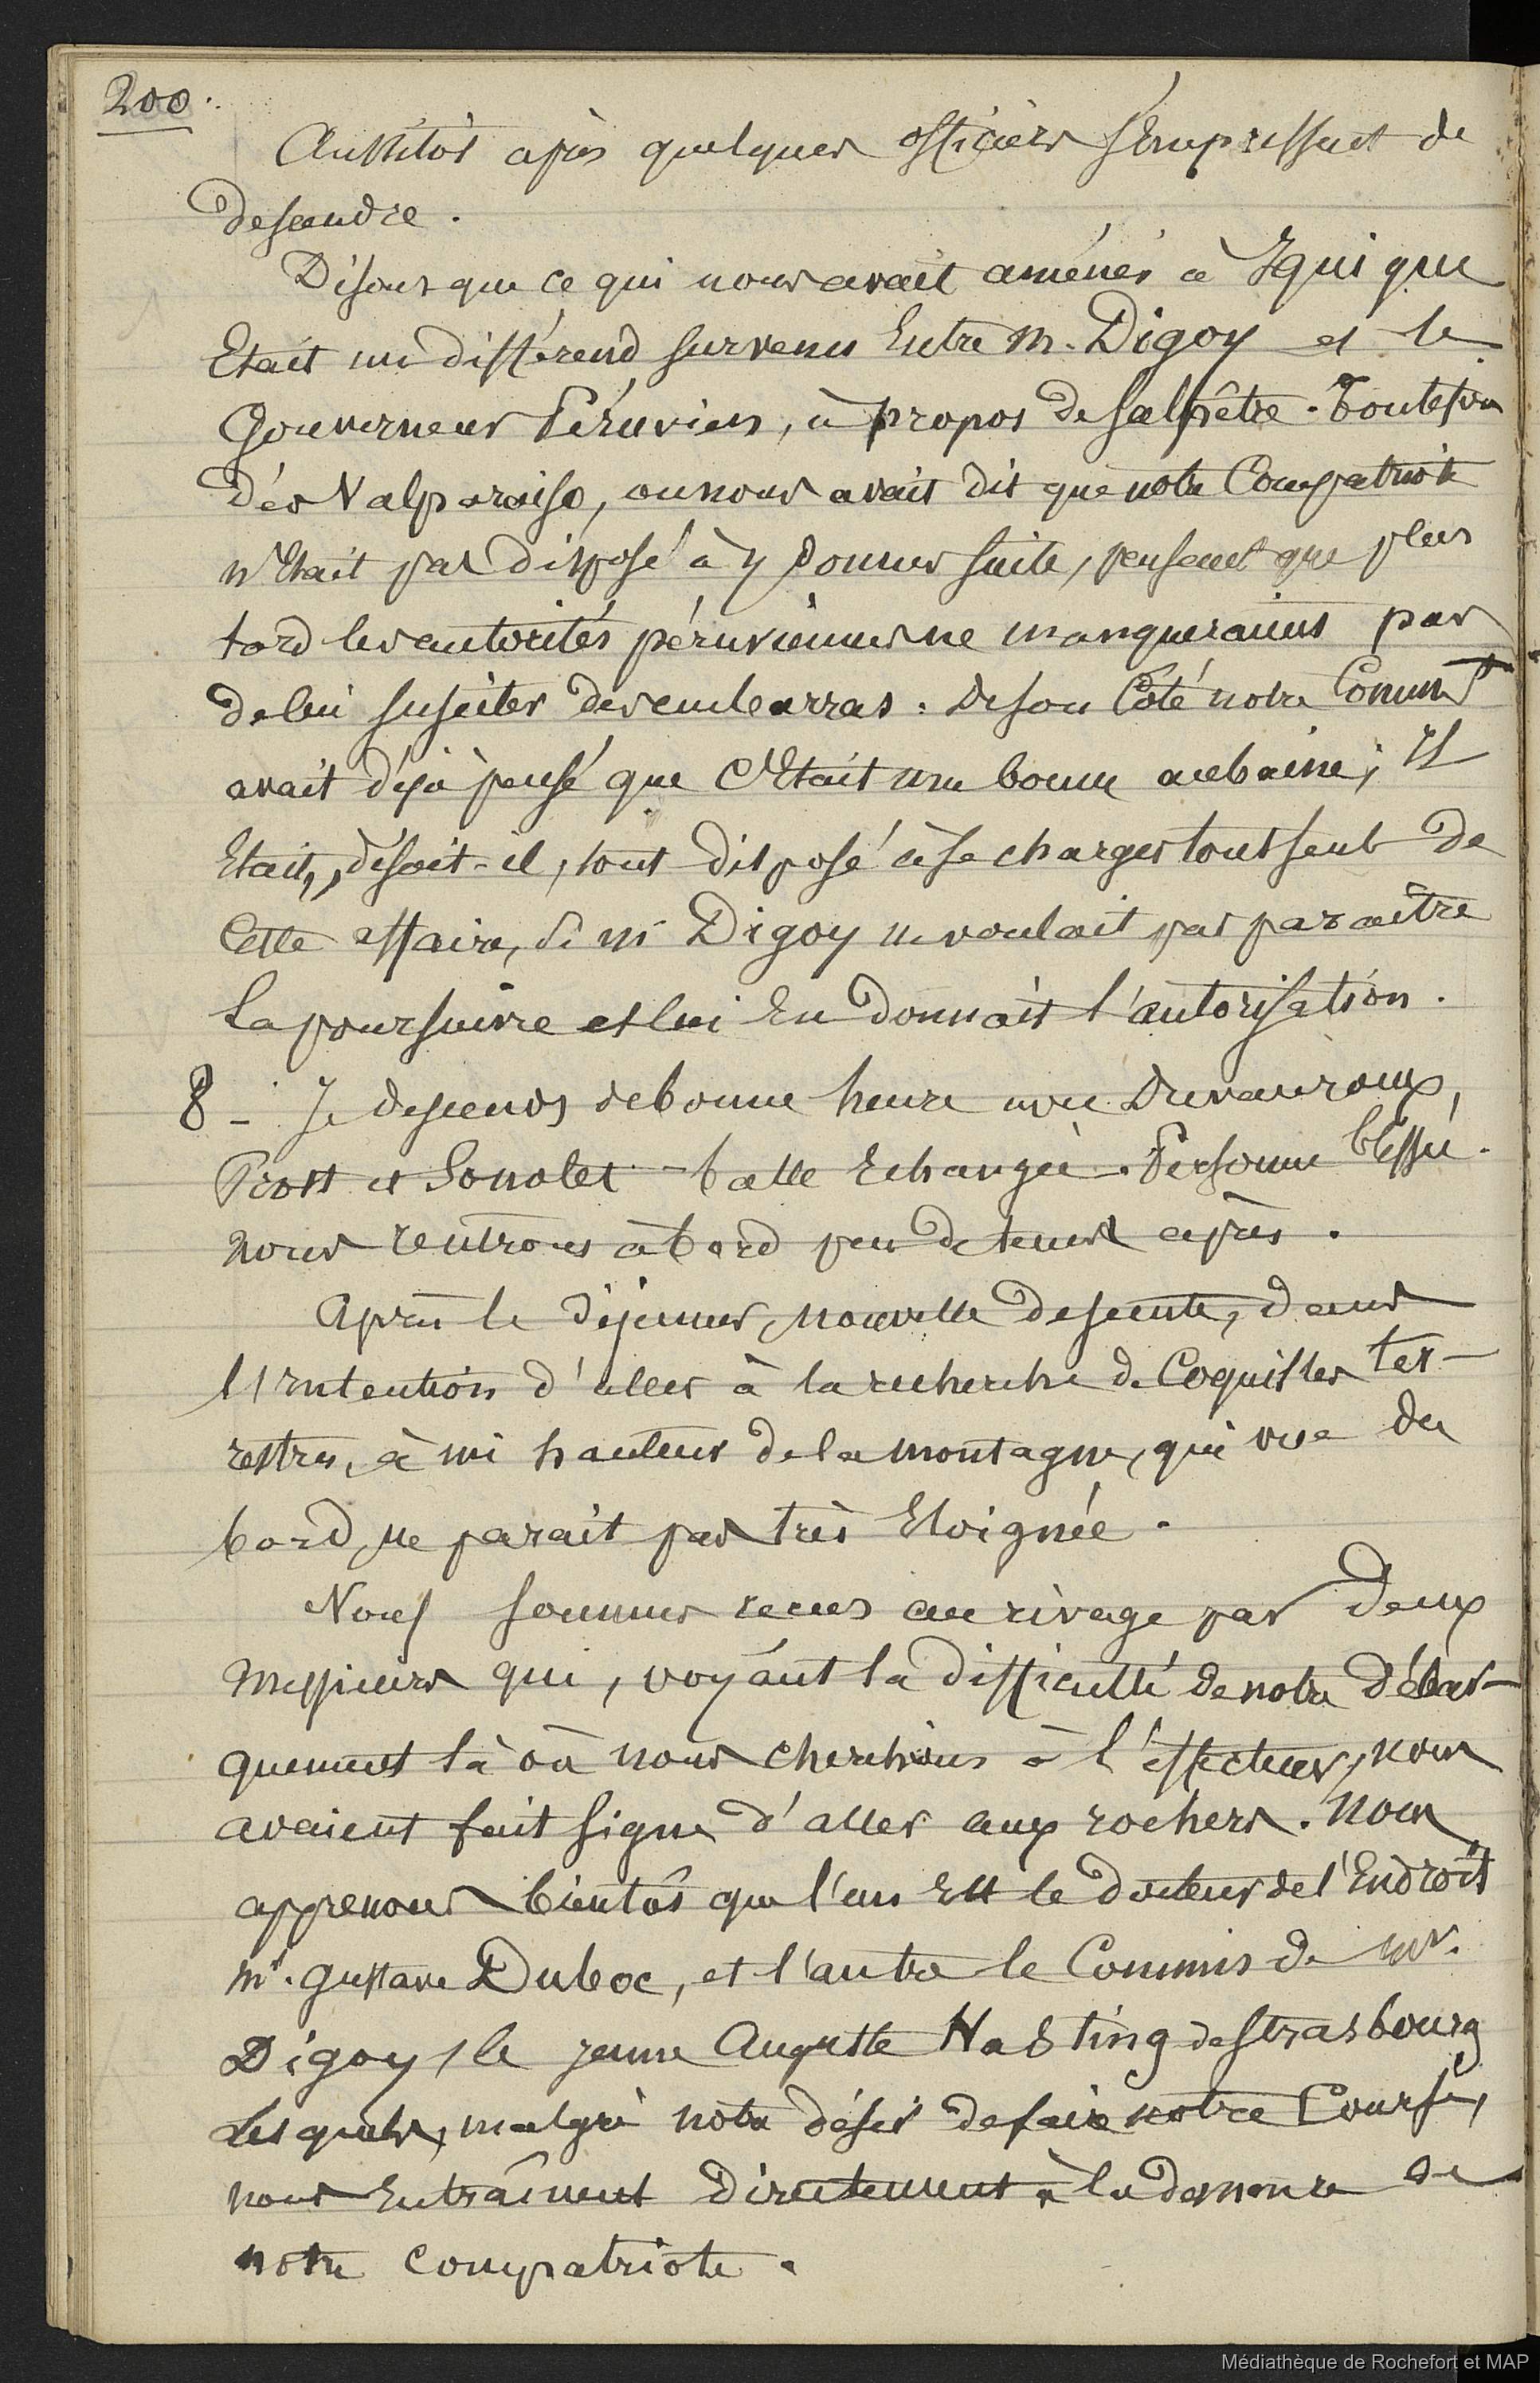 200.
Aussitôt après quelques officiers s'empressent de
descendre.
Disons que ce qui nous avait amenés à Iquique
Etait un différend survenu Entre M. Digoy et le
Gouverneur Péruvien, à propos de salpêtre. Toutefois
dès Valparaiso, on nous avait dit que notre Compatriote
n'Etait pas disposé à y donner suite, pensant que plus
tard les autorités péruviennes ne manqueraient pas
de lui susciter des embarras. De son Côté notre Commt
avait déjà pensé que C'Etait une bonne aubaine; Il
Etait, disait-il, tout disposé à se charger tout seul de
Cette affaire, Si mr Digoy ne voulait pas paraître
La poursuivre et lui En donnait l'autorisation.
8 - Je descends de bonne heure avec Duvauroux,
Prost et Sonolet - balle Echangée. Personne blessé.
nous rentrons à bord peu de temps après.
Après le déjeuner, nouvelle descente, dans
l'Intention d'aller à la recherche de Coquilles ter-
restres, à mi hauteur de la montagne, qui vue du
bord, ne parait pas très Eloignée.
Nous sommes recus au rivage par deux
Messieurs qui, voyant la difficulté de notre débar-
quement là où nous cherchions à l'effectuer, nous
avaient fait signe d'aller aux rochers. Nous
apprenons bientôt que l'un Est le docteur de l'Endroit
mr. Gustave Duboc, et l'autre le Commis de mr.
Digoy, le jeune Auguste Habting de Strasbourg
Lesquels, malgré notre désir de faire notre Course,
nous Entraînent directement à la demeure de
notre compatriote.
Médiathèque de Rochefort et MAP